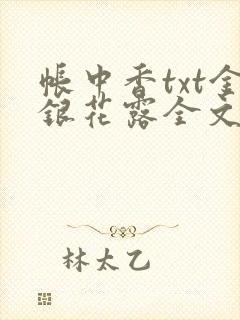 帐中香txt金
银花露全文
林太乙